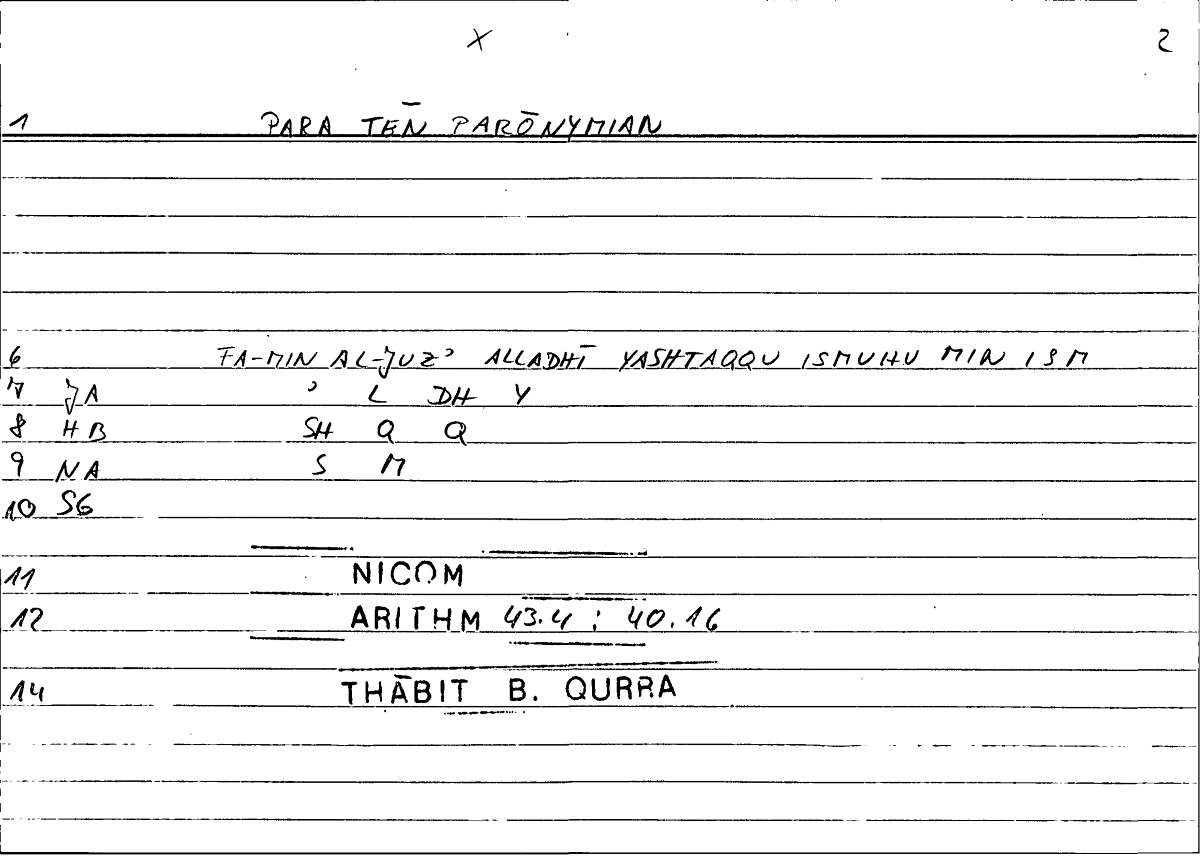 X 2
1 PARA TEN̄ PARŌNYMIAN
6 FA-MIN AL-JUZʾ ALLADHĪ YASHTAQQU ISMUHU MIN ISM
7 JA ʾ L DH Y
8 HB SH Q Q
9 NA S M
10 SG
11 NICOM
12 ARITHM 43.4 ; 40.16
14 THĀBIT B. QURRA